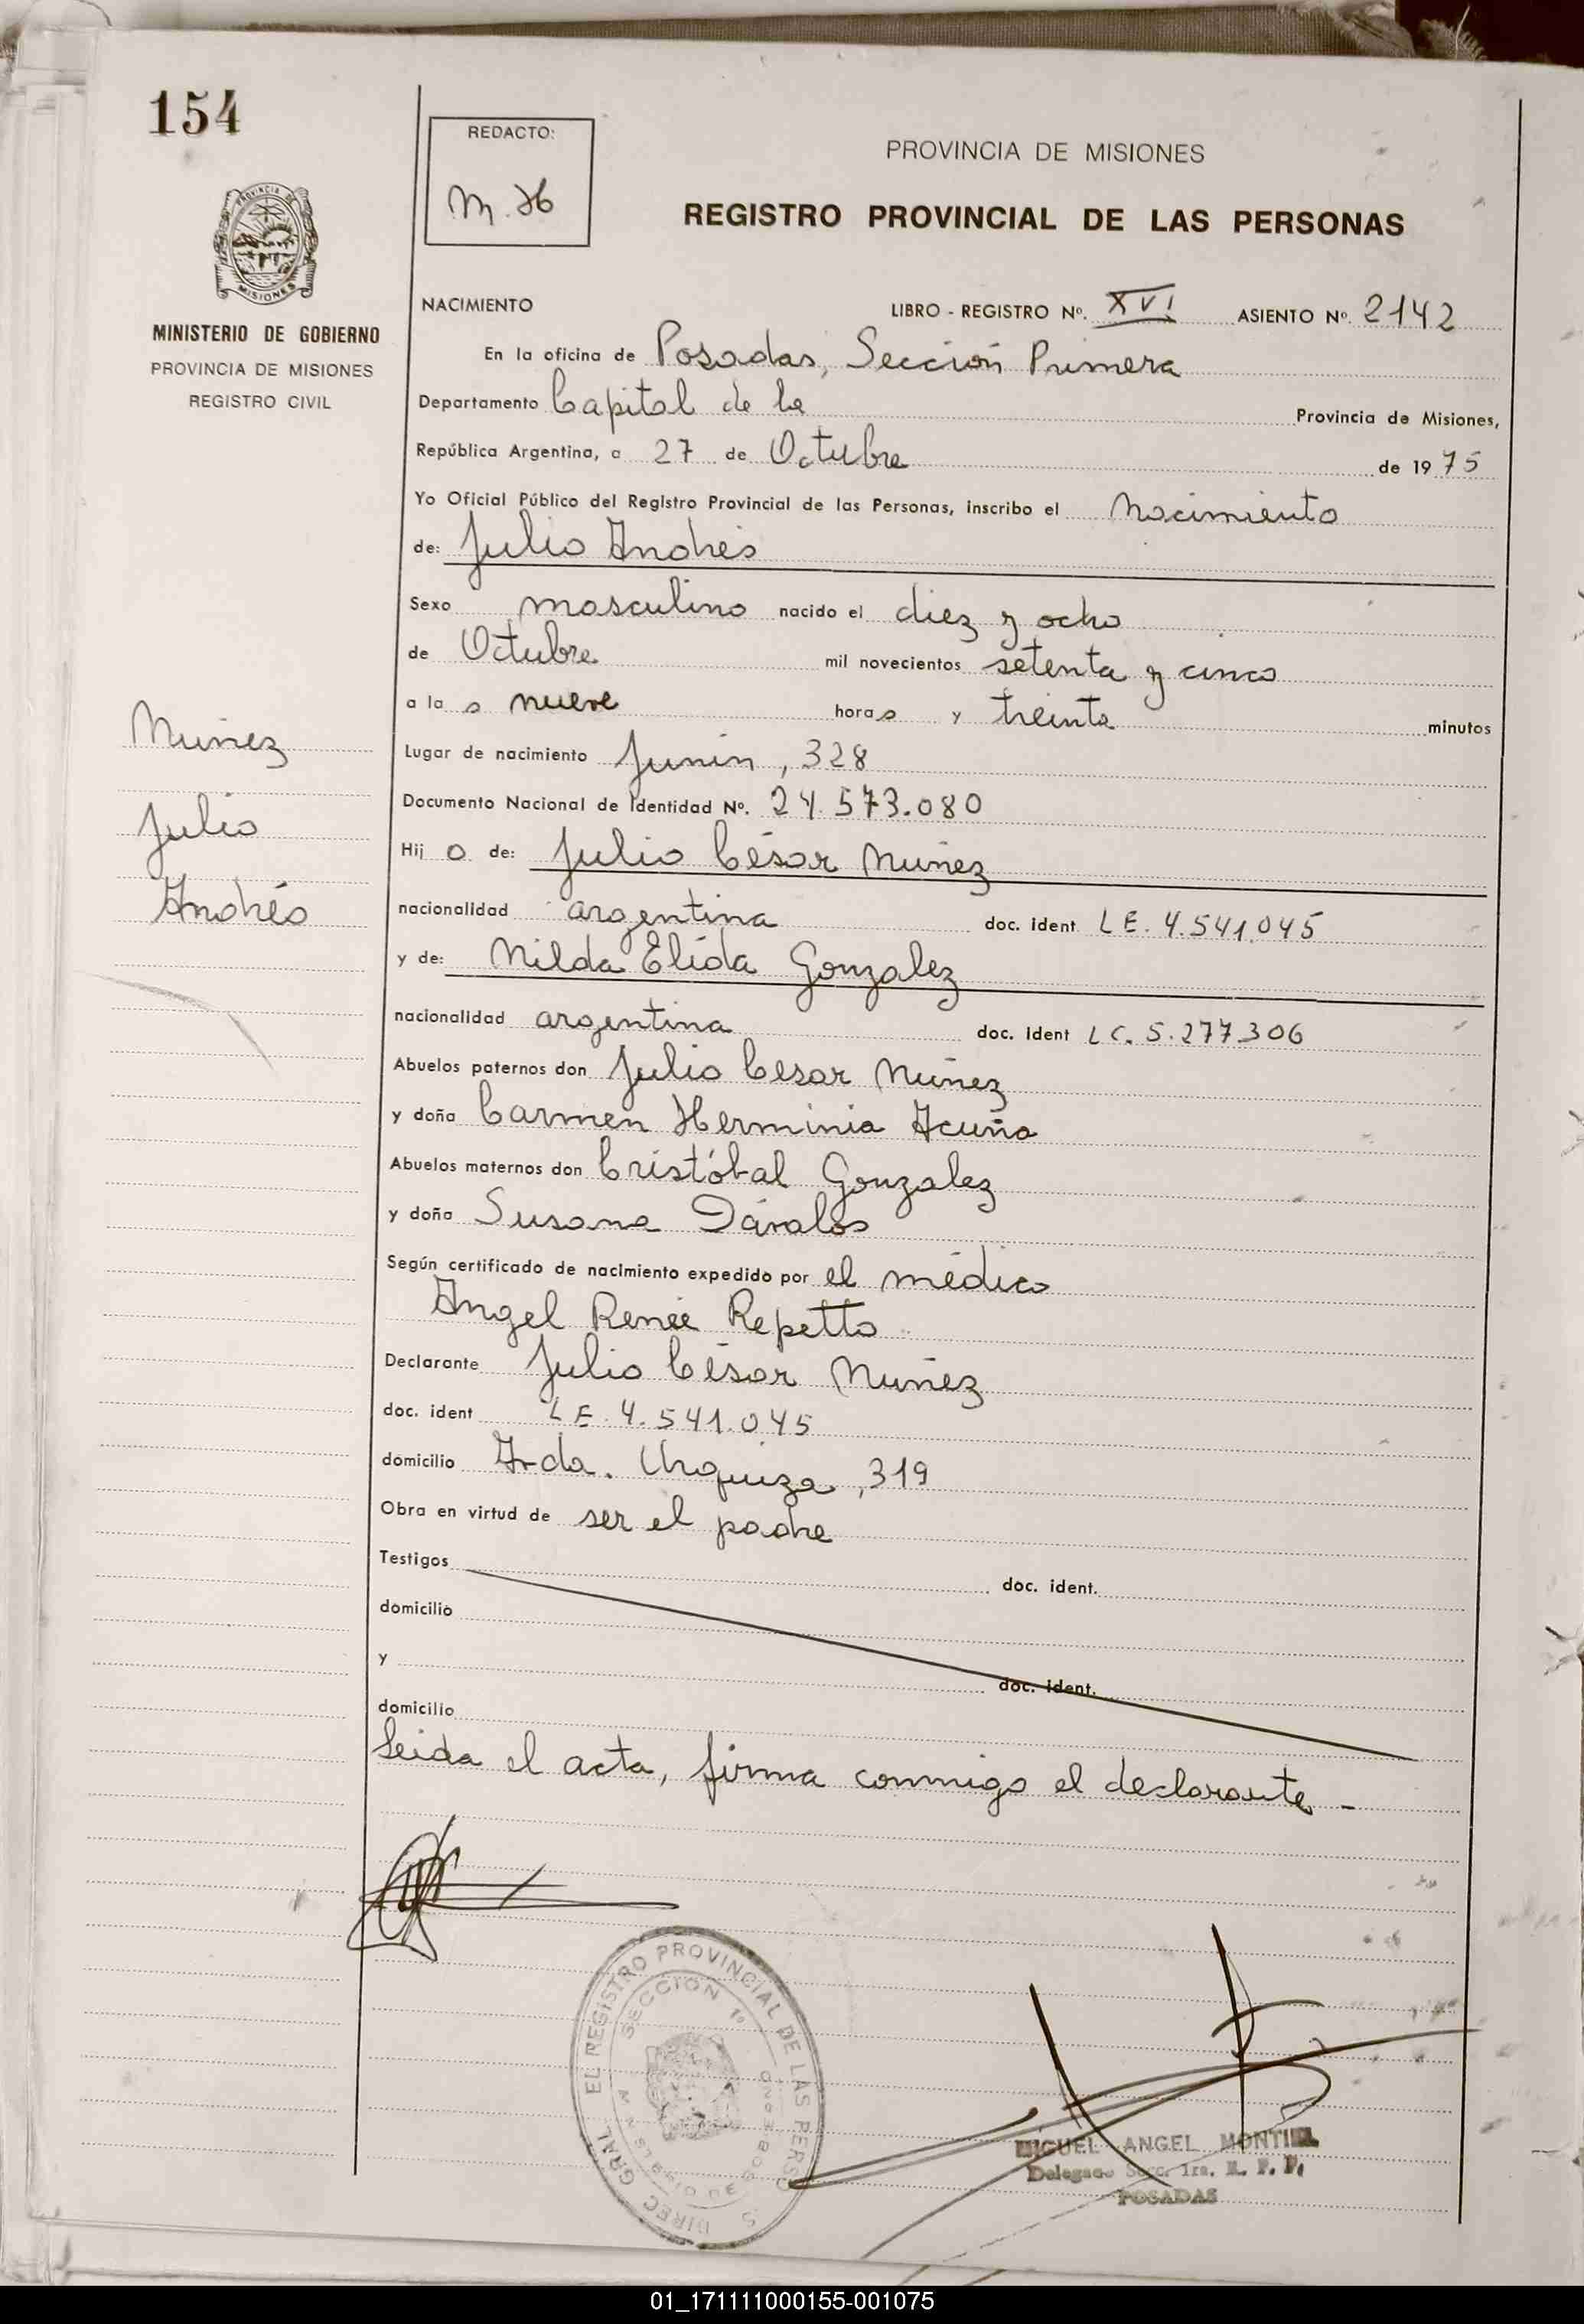 154
REDACTO:
M. H
PROVINCIA DE MISIONES
REGISTRO PROVINCIAL DE LAS PERSONAS
PROVINCIA DE
MISIONES
MINISTERIO DE GOBIERNO
PROVINCIA DE MISIONES
REGISTRO CIVIL
NACIMIENTO LIBRO - REGISTRO Nº. XVI ASIENTO Nº. 2142
En la oficina de Posadas, Sección Primera
Departamento Capital de la Provincia de Misiones,
República Argentina, a 27 de Octubre de 1975
Yo Oficial Público del Registro Provincial de las Personas, inscribo el Nacimiento
de: Julio Andrés
Sexo masculino nacido el diez y ocho
de Octubre mil novecientos setenta y cinco
a la s nueve horas y treinta minutos
Lugar de nacimiento Junín, 328
Documento Nacional de Identidad Nº. 24.573.080
Hij o de: Julio César Nuñez
nacionalidad argentina doc. ident LE. 4.541.045
y de: Nilda Elida Gonzalez
nacionalidad argentina doc. ident LC. 5.277.306
Abuelos paternos don Julio Cesar Nuñez
y doña Carmen Herminia Acuña
Abuelos maternos don Cristóbal Gonzalez
y doña Susana Dávalos
Según certificado de nacimiento expedido por el médico
Angel Renée Repetto
Declarante Julio César Nuñez
doc. ident LE. 4.541.045
domicilio Avda. Urquiza, 319
Obra en virtud de ser el padre
Testigos doc. ident.
domicilio
y doc. ident.
domicilio
Leida el acta, firma conmigo el declarante -
Nuñez
Julio
Andrés
DIREC GRAL EL REGISTRO PROVINCIAL DE LAS PERSO S
SECCION 1º
MIGUEL ANGEL MONTIEL
Delegado Secc. 1ra. R. P. P.
POSADAS
01_171111000155-001075